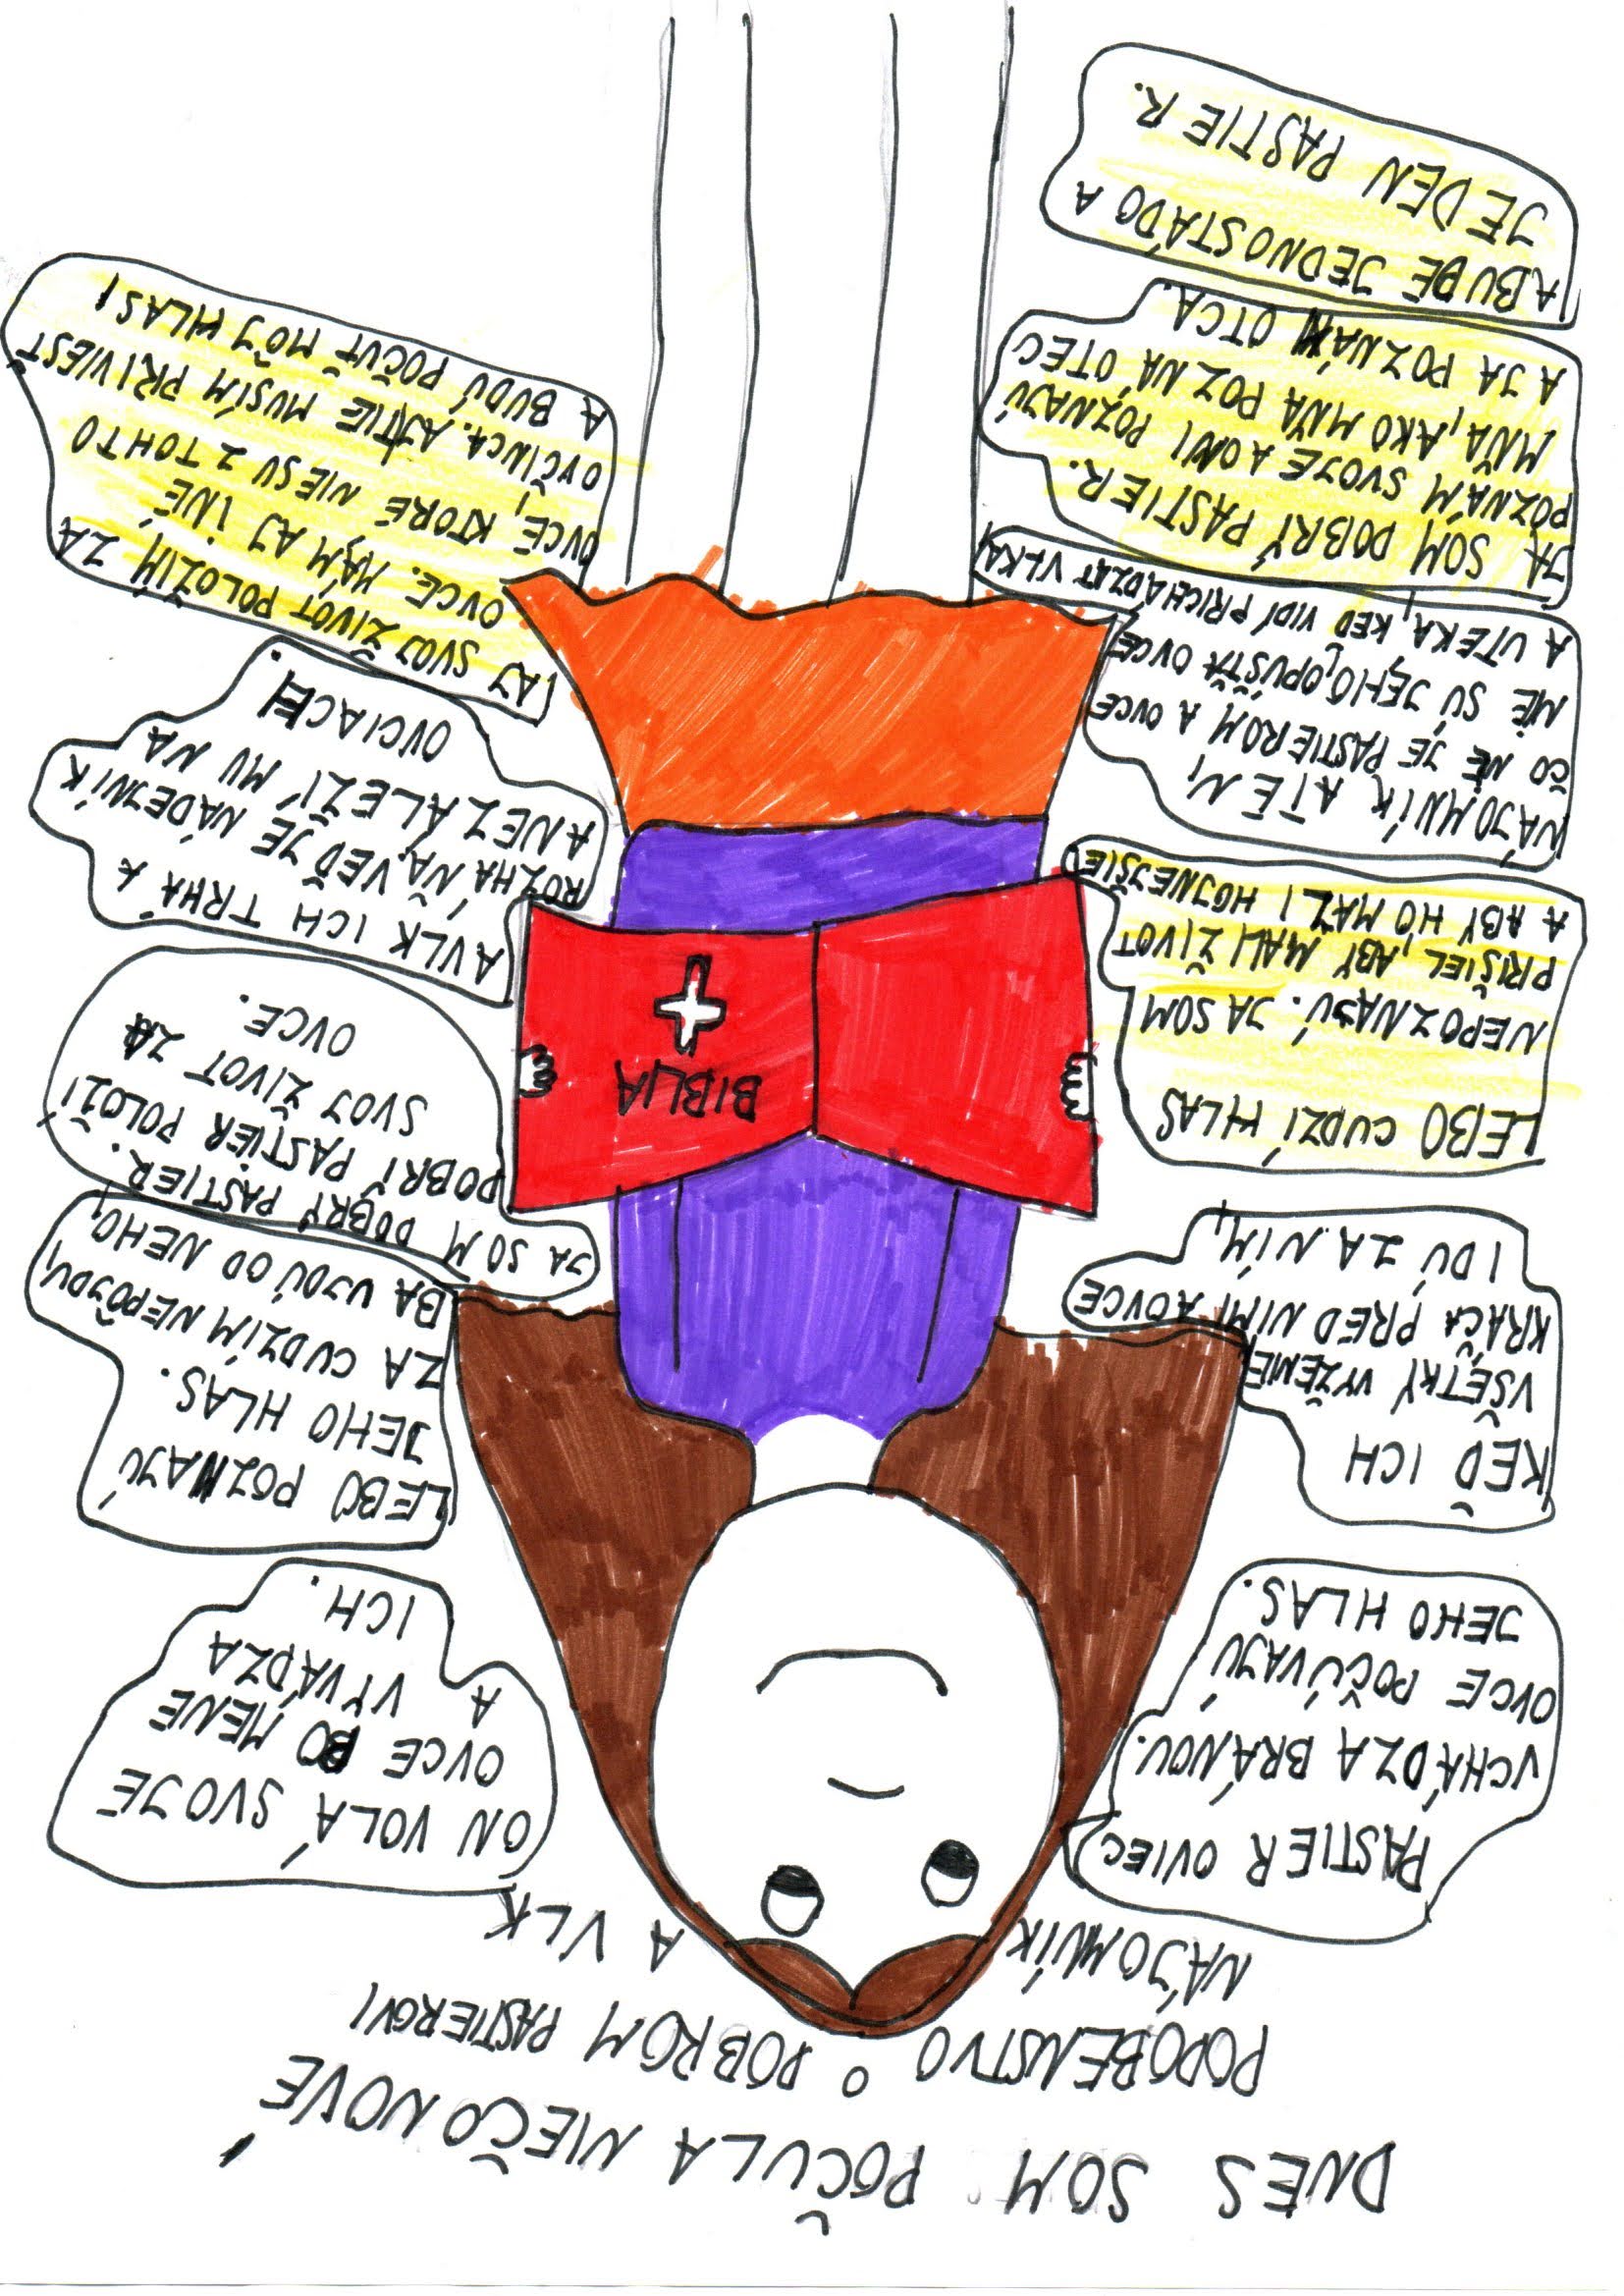 DNES SOM POČULA NIEČO NOVÉ
PODOBENSTVO O DOBROM PASTIEROVI
NÁJOMNÍK A VLK
PASTIER OVIEC
VCHÁDZA BRÁNOU.
OVCE POČÚVAJÚ
JEHO HLAS.
ON VOLÁ SVOJE
OVCE PO MENE
A VYVÁDZA
ICH.
KEĎ ICH
VŠETKY VYŽENIE
KRÁČA PRED NIMI A OVCE
IDÚ ZA NÍM,
LEBO POZNAJÚ
JEHO HLAS.
ZA CUDZÍM NEPÔJDU,
BA UJDÚ OD NEHO,
LEBO CUDZÍ HLAS
NEPOZNAJÚ. JA SOM
PRIŠIEL, ABY MALI ŽIVOT
A ABY HO MALI HOJNEJŠIE
JA SOM DOBRÝ PASTIER.
DOBRÍ PASTIER POLOŽÍ
SVOJ ŽIVOT ZA
OVCE.
NÁJOMNÍK A TEN,
ČO NIE JE PASTIEROM A OVCE
NIE SÚ JEHO, OPÚŠŤA OVCE
A UTEKÁ, KEĎ VIDÍ PRICHÁDZAŤ VLKA
A VLK ICH TRHÁ A
ROZHÁŇA. VEĎ JE NÁDEJNÍK
A NEZÁLEŽÍ MU NA
OVCIACH
JA SOM DOBRÝ PASTIER.
POZNÁM SVOJE A ONI POZNAJÚ
MŇA, AKO MŇA POZNÁ OTEC
A JA POZNÁM OTCA.
AJ SVOJ ŽIVOT POLOŽÍM ZA
OVCE. MÁM AJ INÉ
OVCE, KTORÉ NIESU Z TOHTO
OVČINCA. AJ TIE MUSÍM PRIVIESŤ
A BUDÚ POČUŤ MÔJ HLAS!
A BUDE JEDNO STÁDO A
JEDEN PASTIER.
BIBLIA